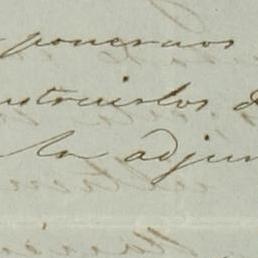 ponernos
nstruirlos d
la adjun